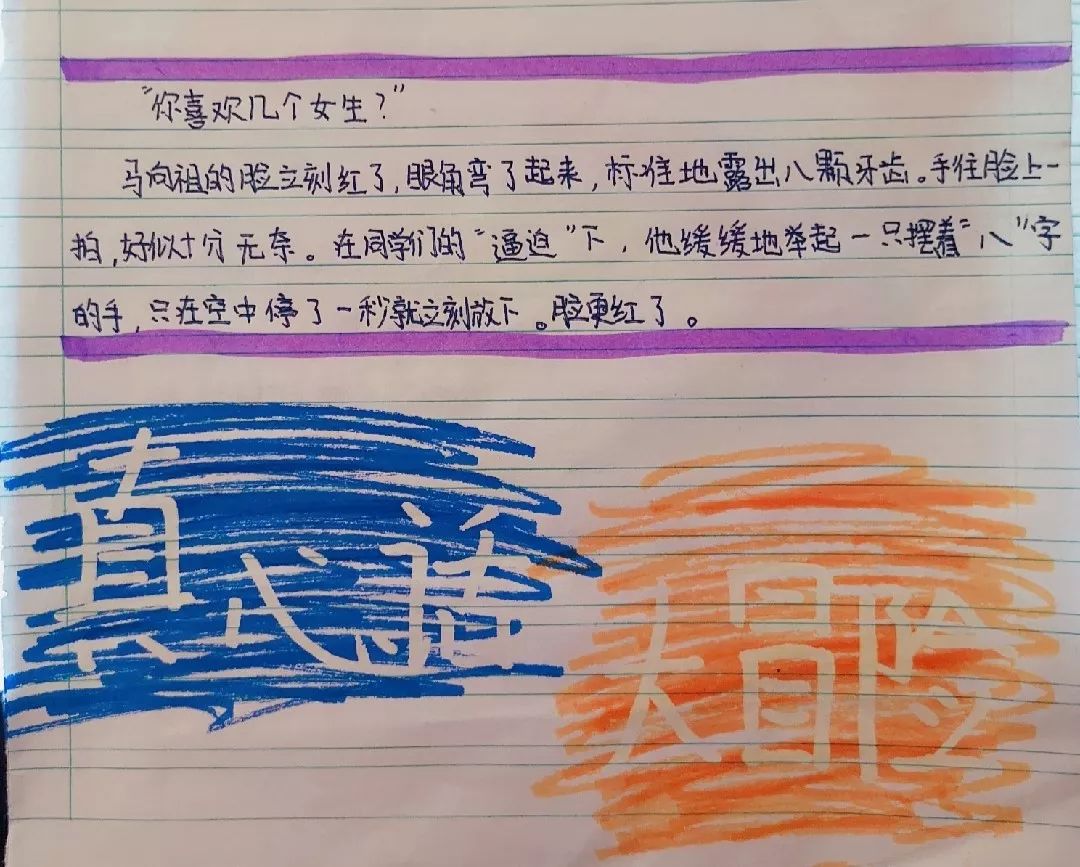 “你喜欢几个女生？”
马向祖的脸立刻红了，眼角弯了起来，标准地露出八颗牙齿。手往脸上一
拍，好似十分无奈。在同学们的“逼迫”下，他缓缓地举起一只摆着“八”字
的手，只在空中停了一秒就立刻放下。脸更红了。
真心话
大冒险